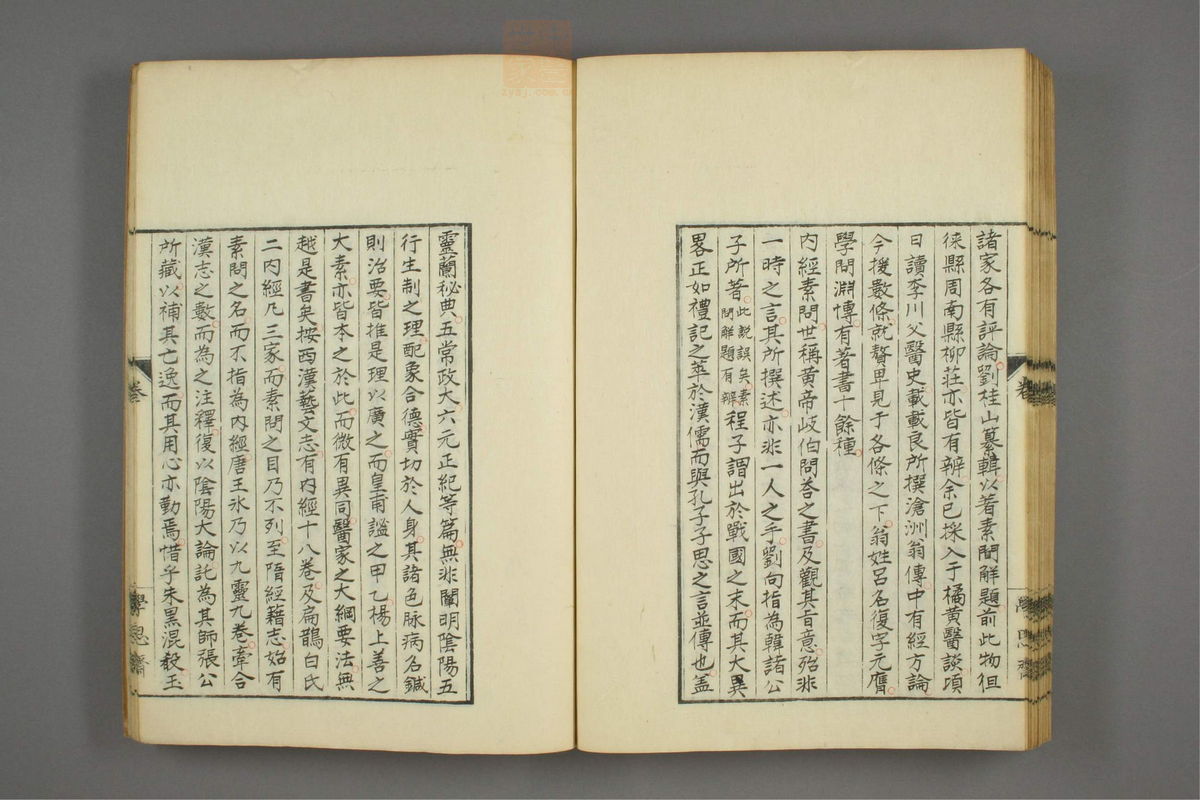 諸家各有評論劉桂山纂輯以著素問解題前此物徂
徠縣周南縣柳荘亦皆有辨余已採入于橘黄醫談項
日讀李川父醫史載載良所撰滄洲翁傳中有經方論
今援數條就贅畀見于各條之下翁姓呂名復字元膺
學問淵愽有著書十餘種
内經素問世稱黄帝歧伯問荅之書及觀其旨意殆非
一時之言其所撰述亦非一人之手劉向指為韓諸公
子所著此説誤矣素問解題有辨程子謂出於戰國之末而其大畧
畧正如禮記之萃於漢儒而與孔子子思之言並傳也盖
靈蘭秘典五常政大六元正紀等篇無非闡明隂陽五
行生制之理配象合德實切於人身其諸色脉病名鍼
則治要皆推是理以廣之而皇甫謐之甲乙楊上善之
大素亦皆本之於此而微有異同醫家之大綱要法無
越是書矣按西漢藝文志有内經十八卷及扁鵲白氏
二内經凢三家而素問之目乃不列至隋經籍志始有
素問之名而不指為内經唐王氷乃以九靈九卷牽合
漢志之數而為之注釋復以隂陽大論託為其師張公
所藏以補其亡逸而其用心亦勤焉惜乎朱黒混殽玉
卷
學思齋